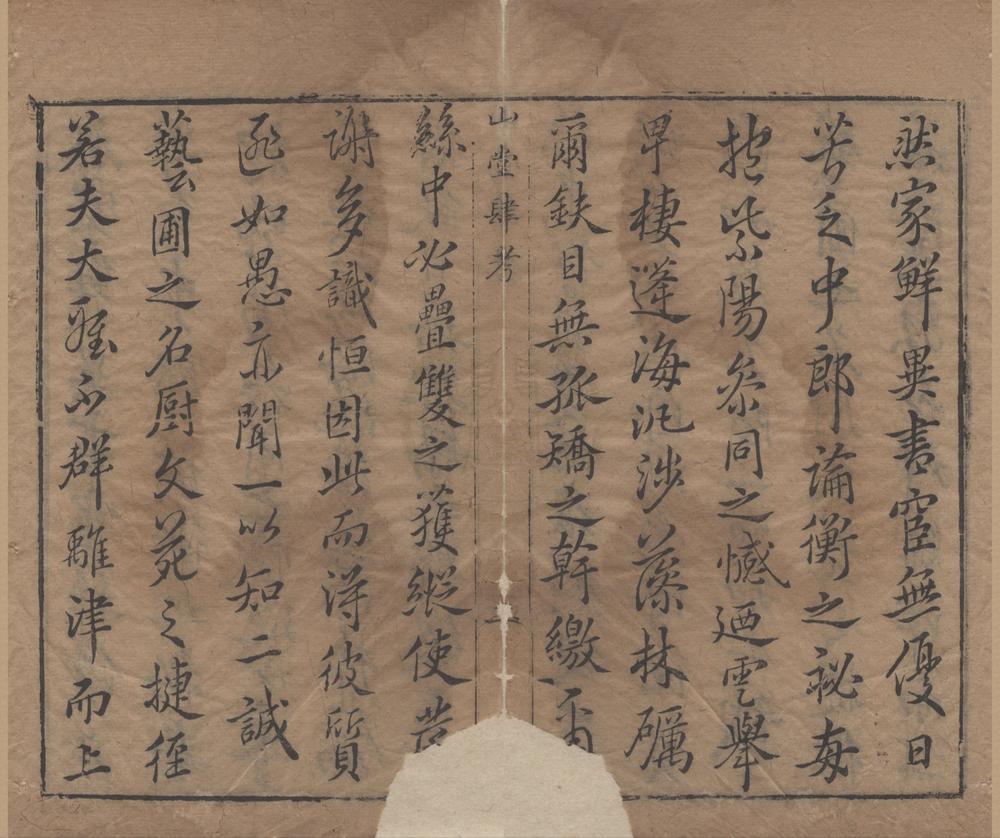 然家鮮異書宦無優日
苦乏中郎論衡之祕每
抱紫陽叅同之憾廼雲舉
卑棲蓬海汎涉藻林礪
爾鈇目無孤矯之幹繳
山堂肆考
絲中必疊雙之獲縱使
謝多識恒因此而得彼質
匪如愚亦聞一以知二誠
藝圃之名厨文苑之捷徑
若夫大雅不群離津而上